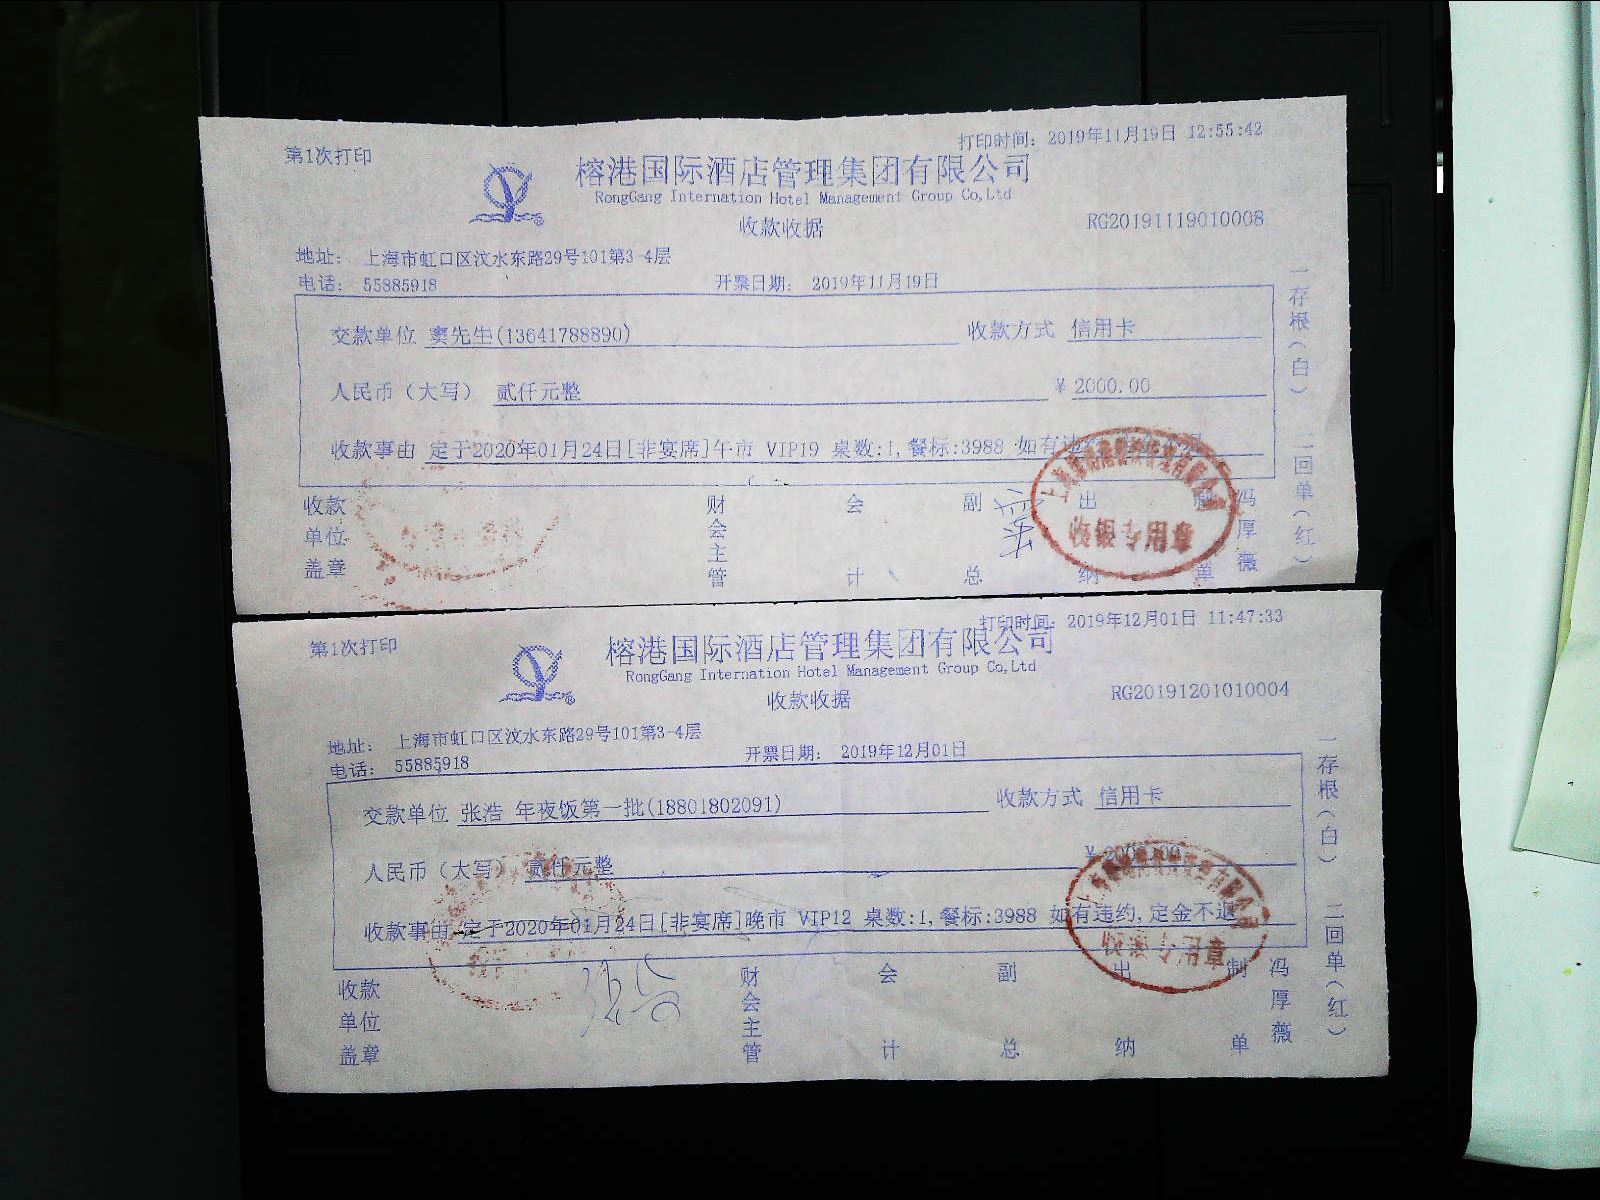 第1次打印
打印时间: 2019年11月19日 12:55:42
榕港国际酒店管理集团有限公司
RongGang Internation Hotel Management Group Co,Ltd
收款收据
RG20191119010008
地址: 上海市虹口区汶水东路29号101第3-4层
电话: 55885918
开票日期: 2019年11月19日
交款单位 窦先生(13641788890)
收款方式 信用卡
人民币(大写) 贰仟元整
¥ 2000.00
收款事由 定于2020年01月24日[非宴席]午市 VIP19 桌数:1,餐标:3988 如有违约
收款单位盖章
财会主管
会计
副总
出纳
制单
冯厚薇
收银专用章
一存根(白) 二回单(红)
第1次打印
打印时间: 2019年12月01日 11:47:33
榕港国际酒店管理集团有限公司
RongGang Internation Hotel Management Group Co,Ltd
收款收据
RG20191201010004
地址: 上海市虹口区汶水东路29号101第3-4层
电话: 55885918
开票日期: 2019年12月01日
交款单位 张浩 年夜饭第一批(18801802091)
收款方式 信用卡
人民币(大写) 贰仟元整
¥ 2000.00
收款事由 定于2020年01月24日[非宴席]晚市 VIP12 桌数:1,餐标:3988 如有违约,定金不退
收款单位盖章
张浩
财会主管
会计
副总
出纳
制单
冯厚薇
一存根(白) 二回单(红)